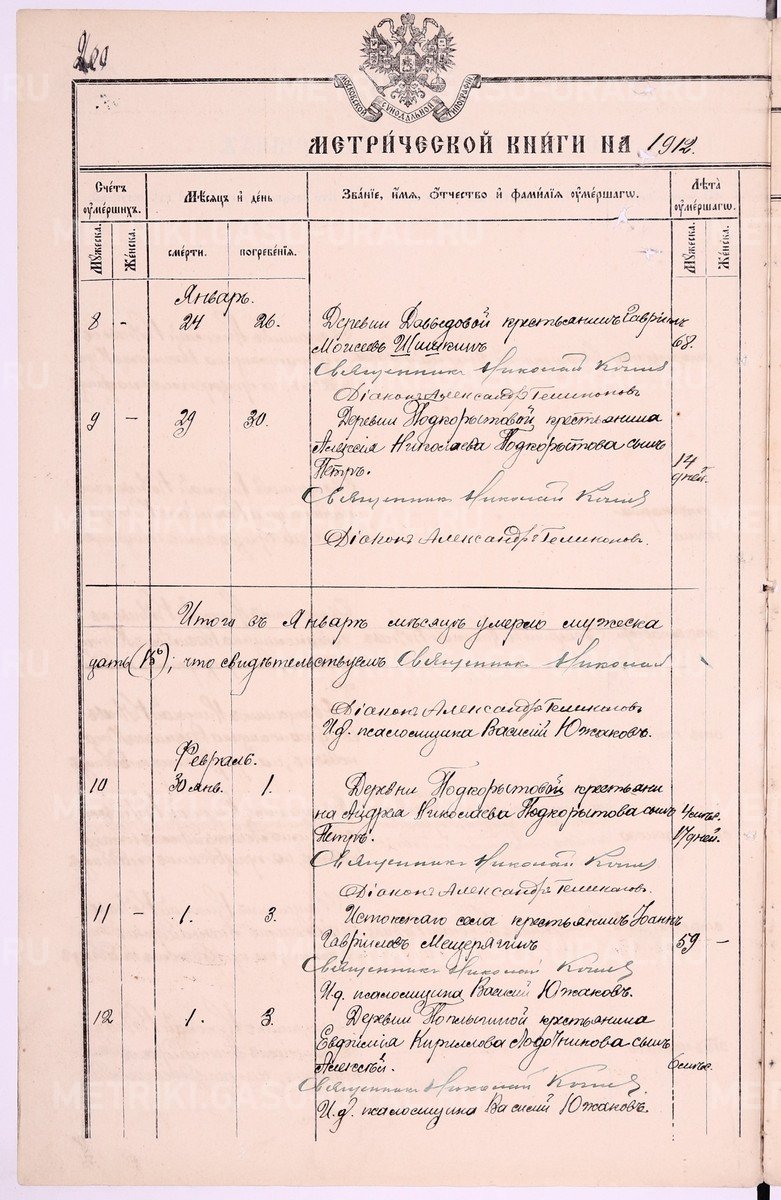 200
МОСКОВСКОЙ СѴНОДАЛЬНОЙ ТИПОГРАФІИ
МЕТРИ́ЧЕСКОЙ КНИ́ГИ НА 1912.
Сче́тъ ᲂу҆ме́ршихъ. Мѣ́сяцъ и҆ де́нь Зва́нїе, и҆́мя, ѻ҆́тчество и҆ фами́лїя ᲂу҆ме́ршагѡ. Лѣ́та ᲂу҆ме́ршагѡ.
Мꙋ́жеска. Же́нска. сме́рти. погребе́нїя. Мꙋ́жеска. Же́нска.
Январь.
8 - 24 26. Деревни Давыдовой крестьянинъ Гавріилъ
Моисеевъ Шишкинъ 68.
Священникъ Николай
Діаконъ Александръ
9 - 29 30. Деревни Подкорытовой крестьянина
Алексія Николаева Подкорытова сынъ
Петръ. 14 дней.
Священникъ Николай
Діаконъ Александръ
Итого въ Январѣ мѣсяцѣ умерло мужеска
; что свидѣтельствуемъ Священникъ Николай
Діаконъ Александръ
И.д. псаломщика Василій Южаковъ.
Февраль.
10 30 янв. 1. Деревни Подкорытовой крестьяни
на Андрея Николаева Подкорытова сынъ
Петръ. 17 дней.
Священникъ Николай
Діаконъ Александръ
11 - 1. 3. Истокскаго села крестьянинъ Іоаннъ
Гавриловъ Мещерягинъ 59 -
Священникъ Николай
И.д. псаломщика Василій Южаковъ.
12 1. 3. Деревни крестьянина
Евфимія Кириллова Лодочникова сынъ
Алексѣй. 6
Священникъ Николай
И.д. псаломщика Василій Южаковъ.